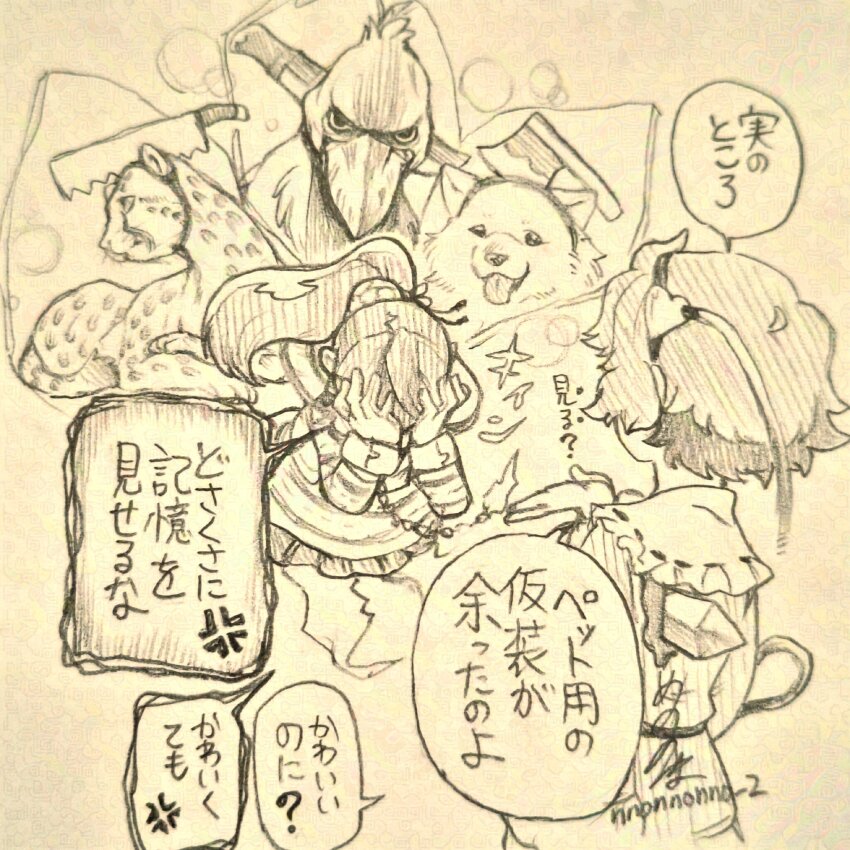 実の
ところ
キィン
見る?
どさくさに
記憶を
見せるな
ペット用の
仮装が
余ったのよ
かわいい
のに?
かわいく
ても
nnonnonno_2